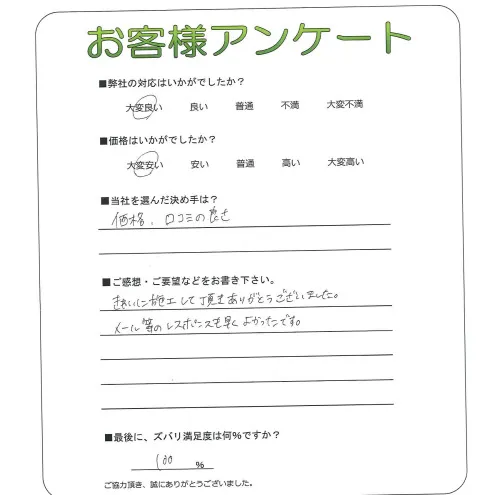 お客様アンケート
■弊社の対応はいかがでしたか？
大変良い 良い 普通 不満 大変不満
■価格はいかがでしたか？
大変安い 安い 普通 高い 大変高い
■当社を選んだ決め手は？
価格、口コミの良さ
■ご感想・ご要望などをお書き下さい。
きれいに施工して頂きありがとうございました。
メール等のレスポンスも早くよかったです。
■最後に、ズバリ満足度は何%ですか？
100 %
ご協力頂き、誠にありがとうございました。